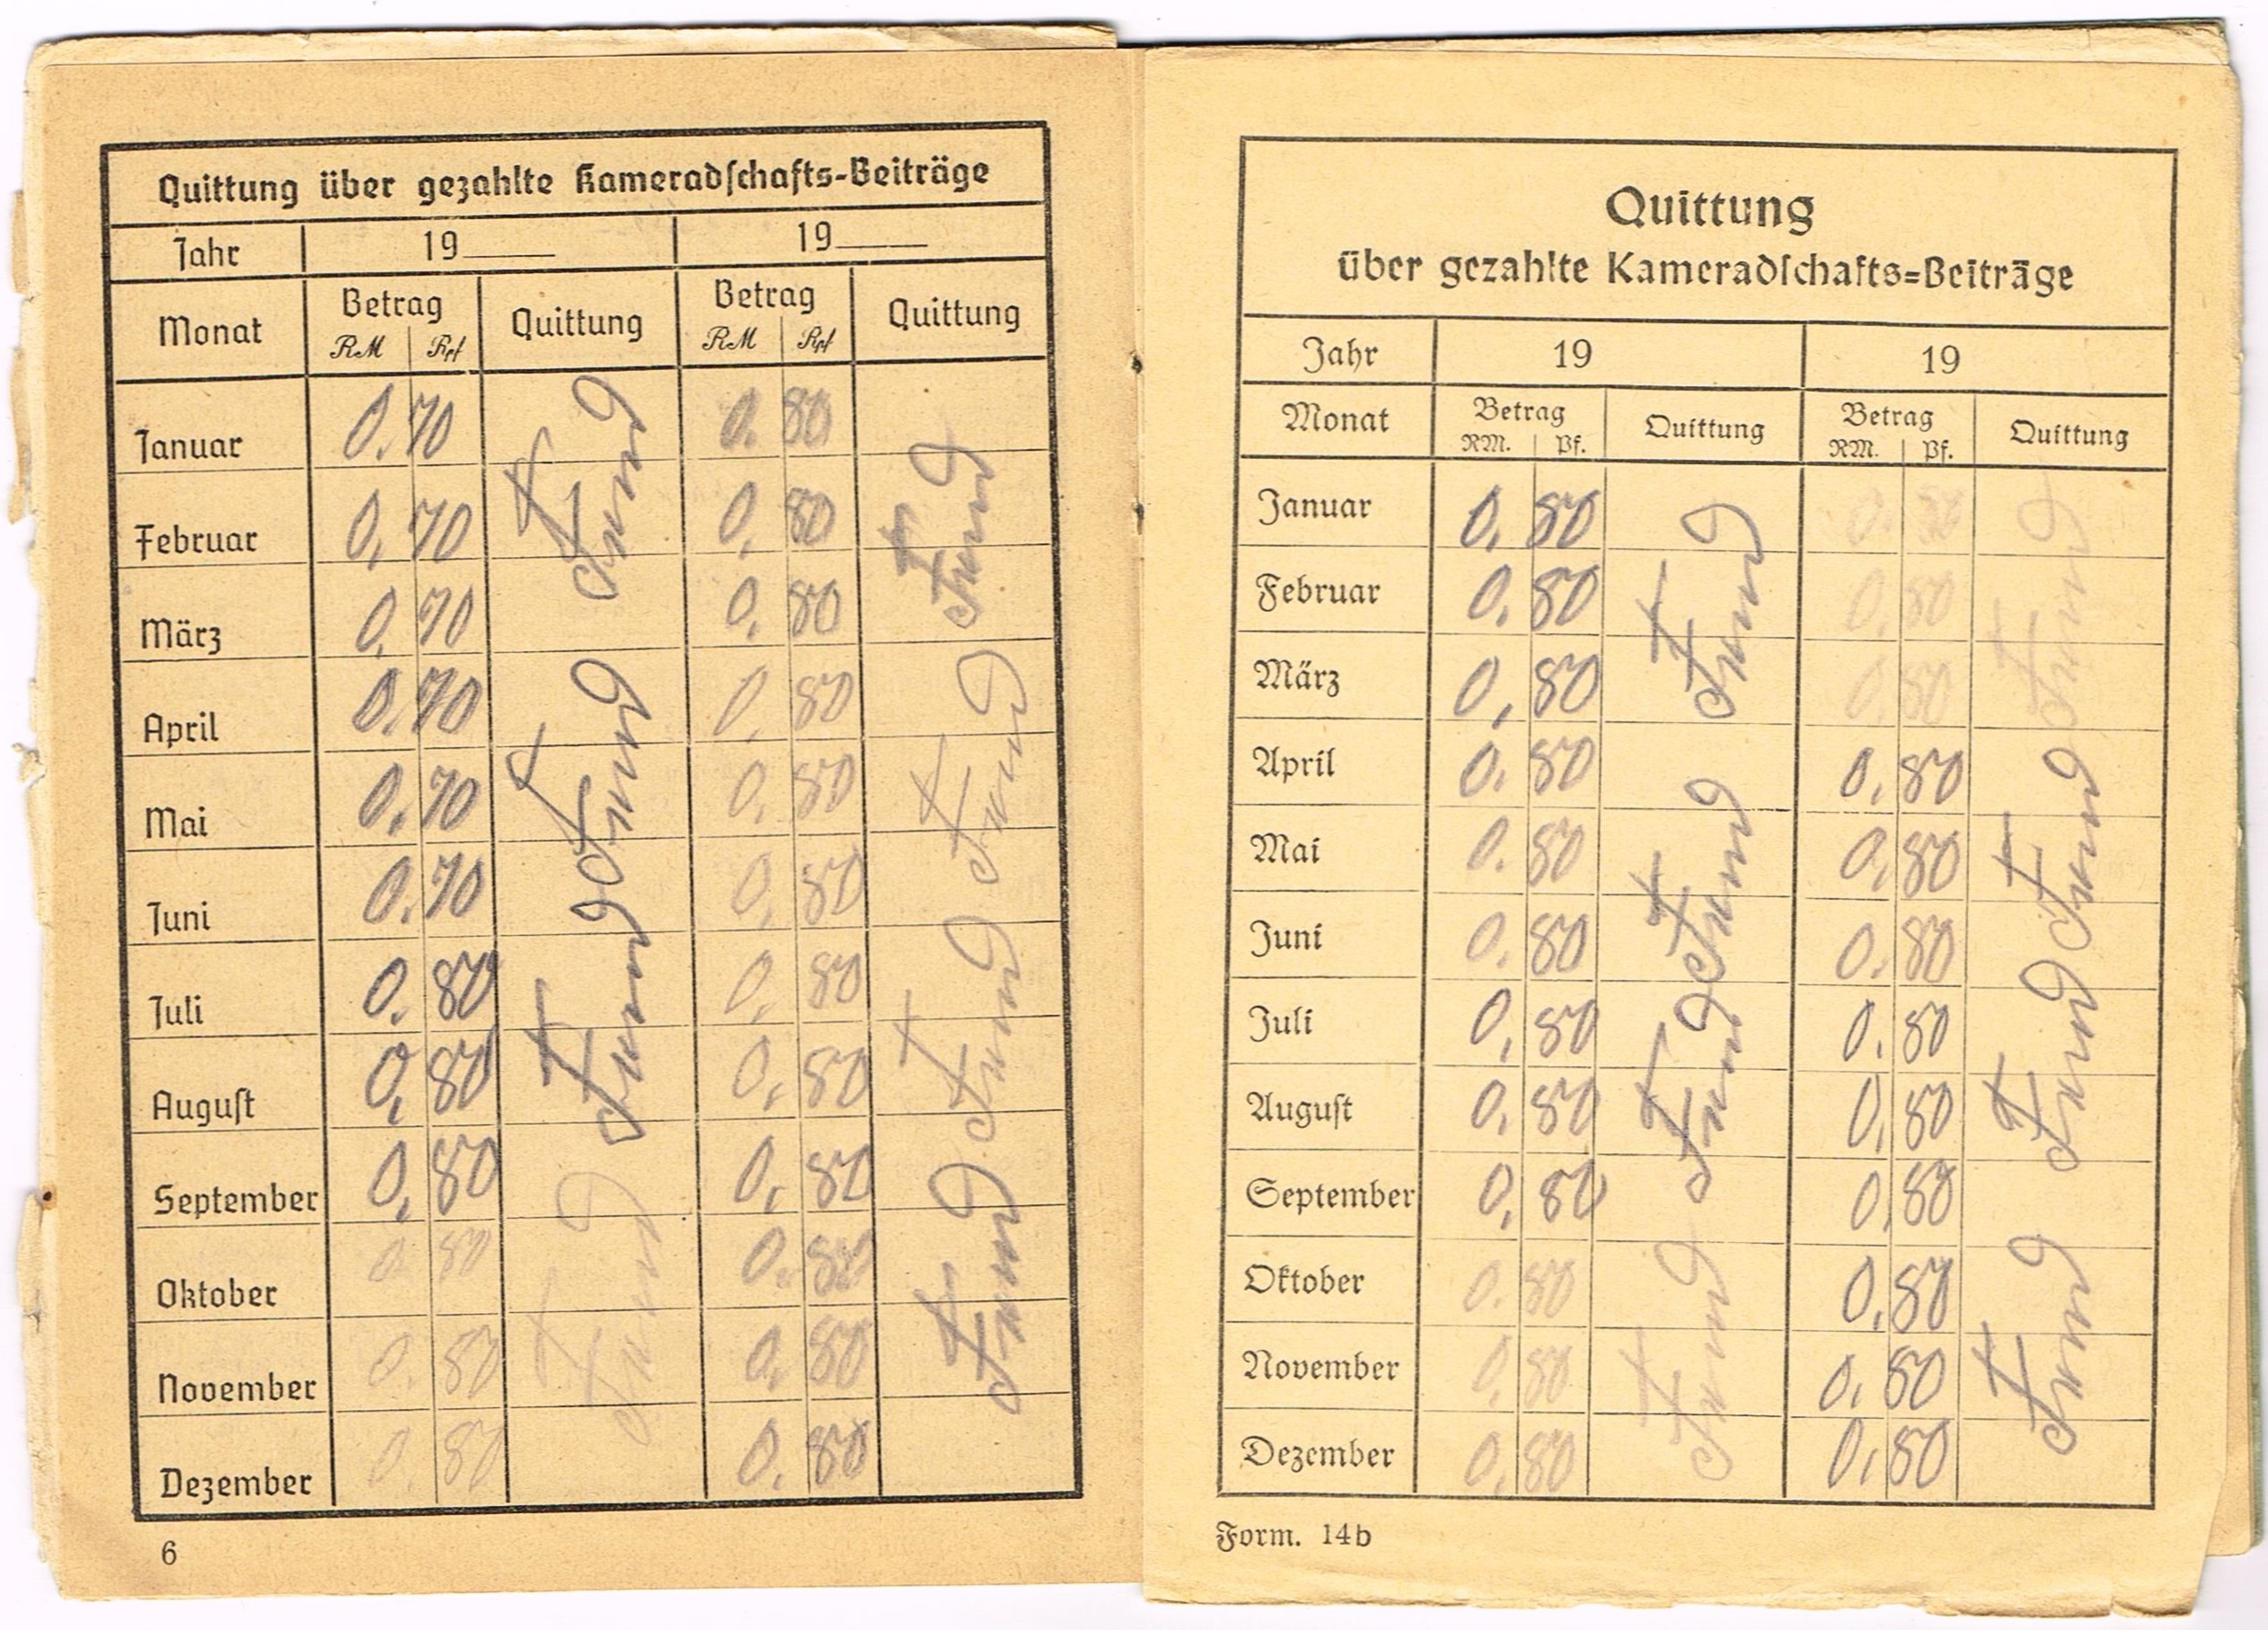 Quittung über gezahlte Kameradschafts-Beiträge
Jahr 19 19
Monat Betrag Quittung Betrag Quittung
RM Rpf RM Rpf
Januar 0.70 0.80
Februar 0,70 0,80
März 0,70 0,80
April 0,70 0,80
Mai 0,70 0,80
Juni 0.70 0,80
Juli 0.80 0,80
August 0,80 0,80
September 0,80 0,80
Oktober 0.80 0,80
November 0.80 0,80
Dezember 0.80 0.80
6
Quittung
über gezahlte Kameradschafts=Beiträge
Jahr 19 19
Monat Betrag Quittung Betrag Quittung
RM. Pf. RM. Pf.
Januar 0,80 0.80
Februar 0,80 0,80
März 0,80 0,80
April 0.80 0,80
Mai 0.80 0,80
Juni 0.80 0.80
Juli 0,80 0.80
August 0,80 0,80
September 0,80 0,80
Oktober 0.80 0,80
November 0,80 0,80
Dezember 0,80 0,80
Form. 14b